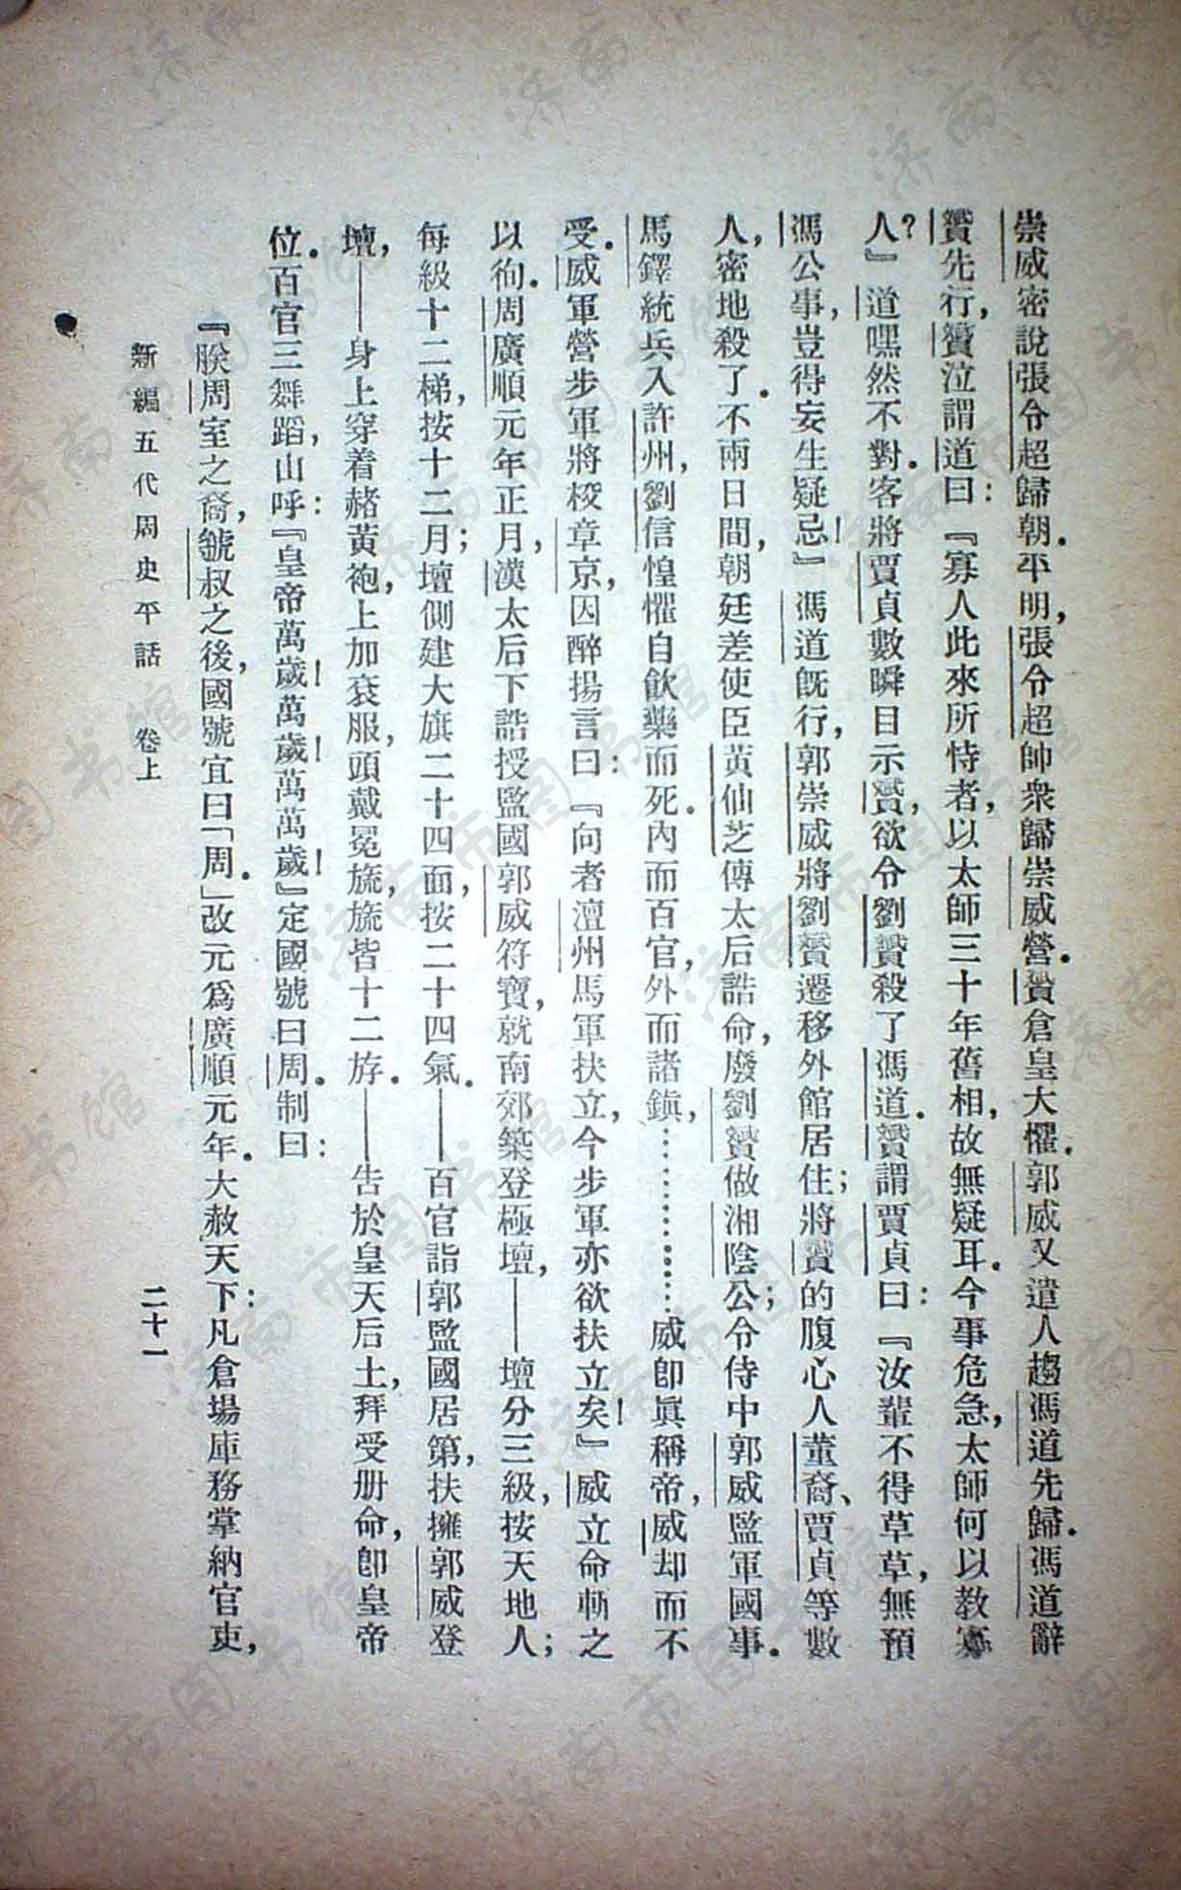 崇威密說張令超歸朝。平明,張令超帥衆歸崇威營。贇倉皇大懼。郭威又遣人趨馮道先歸。馮道辭
贇先行,贇泣謂道曰:『寡人此來所恃者,以太師三十年舊相,故無疑耳。今事危急,太師何以教寡
人?』道嘿然不對。客將賈貞數瞬目示贇,欲令劉贇殺了馮道。贇謂賈貞曰:『汝輩不得草草,無預
馮公事,豈得妄生疑忌!』馮道旣行,郭崇威將劉贇遷移外館居住;將贇的腹心人董裔、賈貞等數
人,密地殺了。不兩日間,朝廷差使臣黃仙芝傳太后誥命,廢劉贇做湘陰公;令侍中郭威監軍國事。
馬鐸統兵入許州,劉信惶懼自飮藥而死。內而百官,外而諸鎭,…………威卽眞稱帝,威却而不
受。威軍營步軍將校章京,因醉揚言曰:『向者澶州馬軍扶立,今步軍亦欲扶立矣!』威立命斬之
以徇。周廣順元年正月,漢太后下誥授監國郭威符寶,就南郊築登極壇,——壇分三級,按天地人;
每級十二梯,按十二月;壇側建大旗二十四面,按二十四氣。——百官詣郭監國居第,扶擁郭威登
壇,——身上穿着赭黃袍,上加袞服,頭戴冕旒,旒皆十二斿。——告於皇天后土,拜受册命,卽皇帝
位。百官三舞蹈,山呼:『皇帝萬歲!萬歲!萬萬歲!』定國號曰周。制曰:
『朕周室之裔,虢叔之後,國號宜曰「周。」改元爲廣順元年。大赦天下:凡倉場庫務掌納官吏,
新編五代周史平話 卷上 二十一
濟南市图书馆